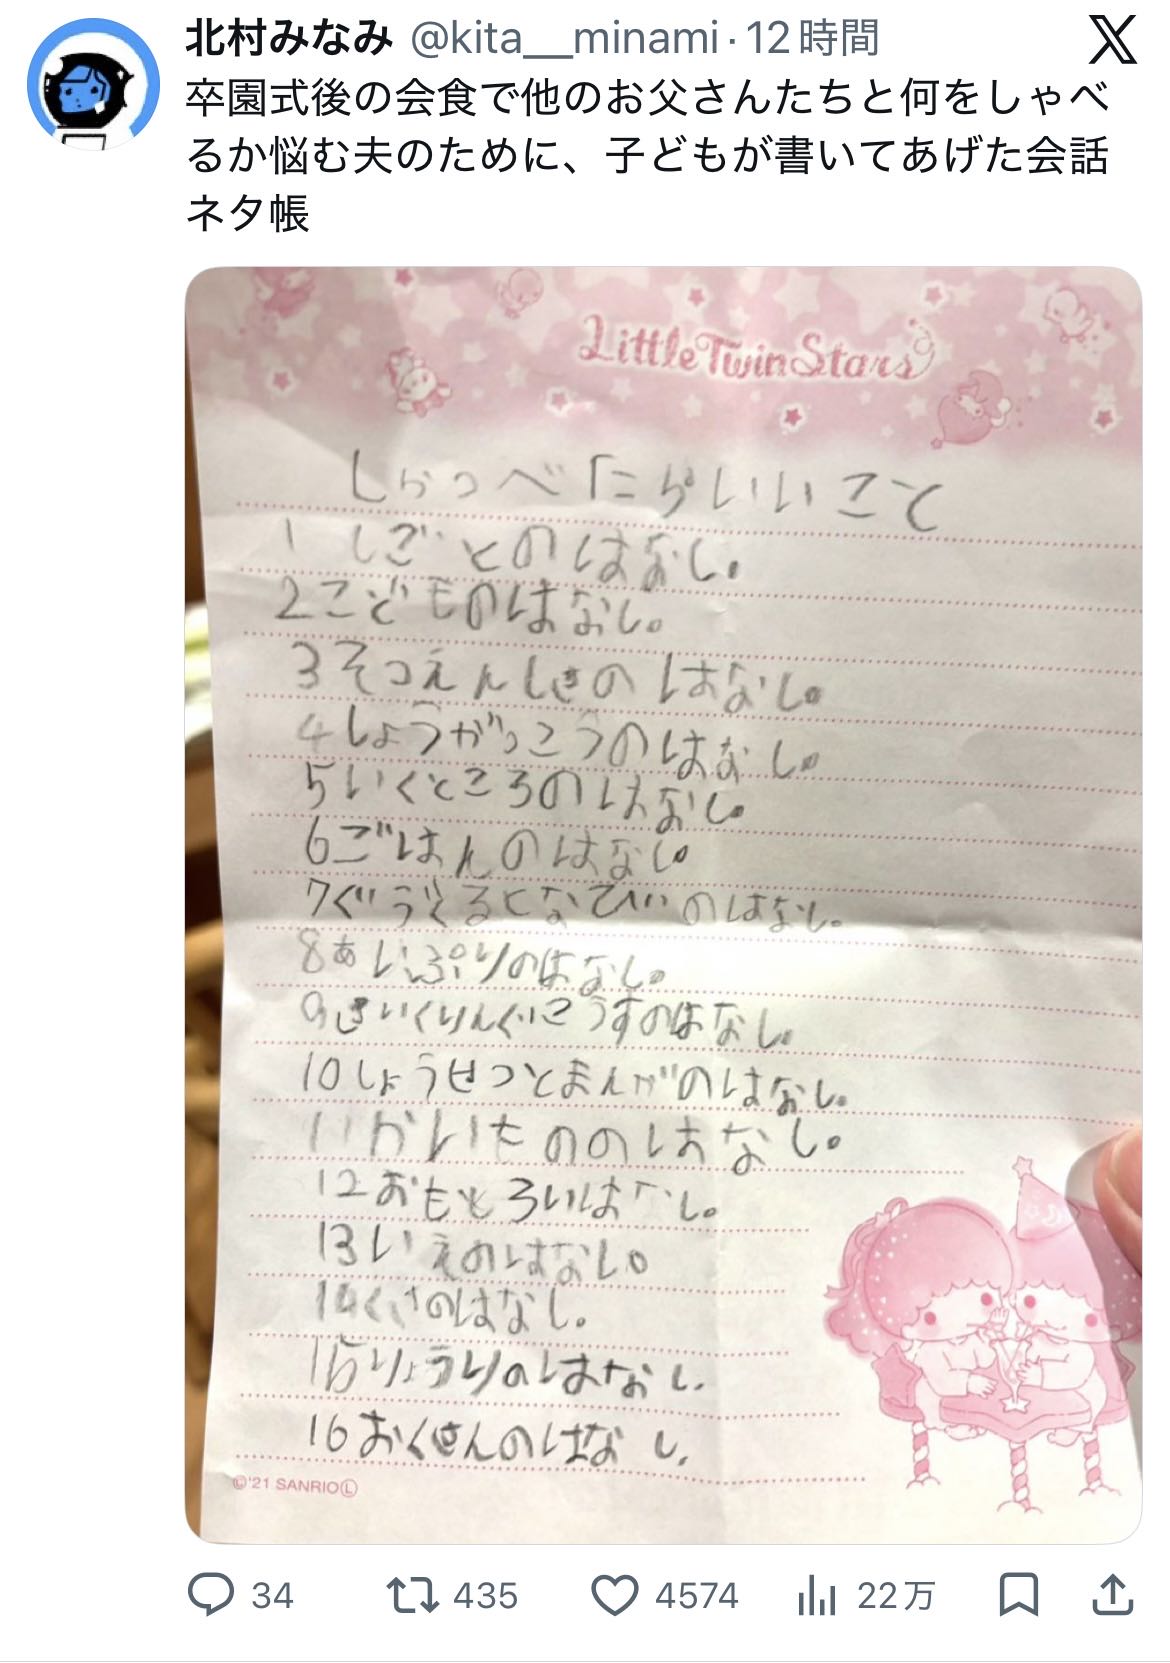 北村みなみ @kita__minami · 12時間
卒園式後の会食で他のお父さんたちと何をしゃべ
るか悩む夫のために、子どもが書いてあげた会話
ネタ帳
LittleTwinStars
しゃっべたらいいこと
1 しごとのはなし。
2こどものはなし。
3そつえんしきのはなし。
4しょうがっこうのはなし。
5いくところのはなし。
6ごはんのはなし。
7ぐうぐるとなびいのはなし。
8あいぷりのはなし。
9さいくりんぐこうすのはなし。
10しょうせつとまんがのはなし。
11かいたもののはなし。
12おもしろいはなし。
13いえのはなし。
14くさのはなし。
15りょうりのはなし.
16おくさんのはなし.
©'21 SANRIO Ⓛ
34 435 4574 22万